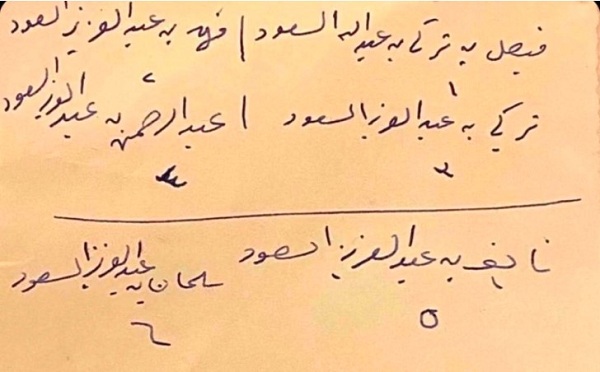 فيصل بن تركي بن عبدالله السعود | فهد بن عبدالعزيز السعود
١ ٢
تركي بن عبدالعزيز السعود | عبدالرحمن بن عبدالعزيز السعود
٣ ٤
نايف بن عبدالعزيز السعود سلمان بن عبدالعزيز السعود
٥ ٦